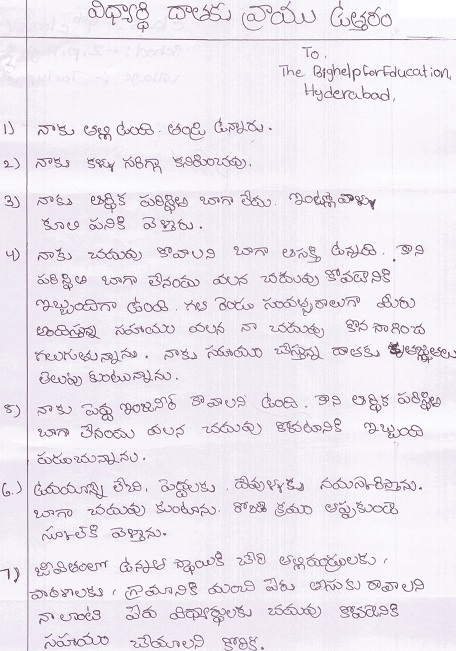 విద్యార్థి దాతకు వ్రాయు ఉత్తరం
To,
The Bighelp for Education,
Hyderabad,
1) నాకు తల్లి ఉంది. తండ్రి ఉన్నారు.
2) నాకు కళ్ళు సరిగ్గా కనిపించవు.
3) నాకు ఆర్థిక పరిస్థితి బాగా లేదు. ఇంట్లోవాళ్ళు
కూలి పనికి వెళ్తారు.
4) నాకు చదువు కోవాలని బాగా ఆసక్తి ఉన్నది. కాని
పరిస్థితి బాగా లేనందు వలన చదువు కోవడానికి
ఇబ్బందిగా ఉంది. గత రెండు సంవత్సరాలుగా మీరు
అందిస్తున్న సహాయం వలన నా చదువు కొన సాగించ
గలుగుతున్నాను. నాకు సహాయం చేస్తున్న దాతకు కృతజ్ఞతలు
తెలుపు కుంటున్నాను.
5) నాకు పెద్ద ఇంజనీర్ కావాలని ఉంది. కాని ఆర్థిక పరిస్థితి
బాగా లేనందు వలన చదువు కోవటానికి ఇబ్బంది
పడుచున్నాను.
6.) ఉదయాన్నే లేచి, పెద్దలకు, దేవుళ్ళకు నమస్కరిస్తాను.
బాగా చదువు కుంటాను. రోజు క్రమం తప్పకుండా
స్కూల్‌కి వెళ్తాను.
7) జీవితంలో ఉన్నత స్థాయికి చేరి తల్లిదండ్రులకు,
పాఠశాలకు, గ్రామానికి మంచి పేరు తీసుకు రావాలని
నా లాంటి పేద విద్యార్థులకు చదువు కోవడానికి
సహాయం చేయాలని కోరిక.